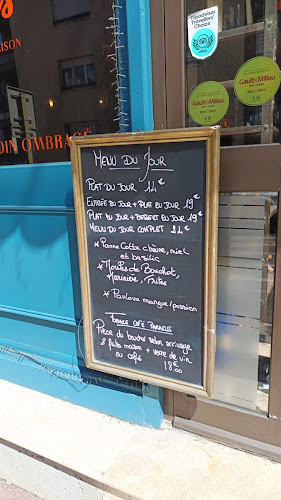 ISON
DIN OMBRAGÉ
Tripadvisor
Travellers'
Choice
Gault&Millau
Gault&Millau
MENU DU JOUR
PLAT DU JOUR 14€
ENTRÉE DU JOUR + PLAT DU JOUR 19€
PLAT DU JOUR + DESSERT DU JOUR 19€
MENU DU JOUR COMPLET 24€
* Panna Cotta chèvre, miel
et basilic
* Moules de Bouchot,
Marinière, Frites
* Pavlova mangue/passion
FORMULE CAFÉ
Pièce du boucher selon arrivage
& frites maison + verre de vin
ou café 18.00€